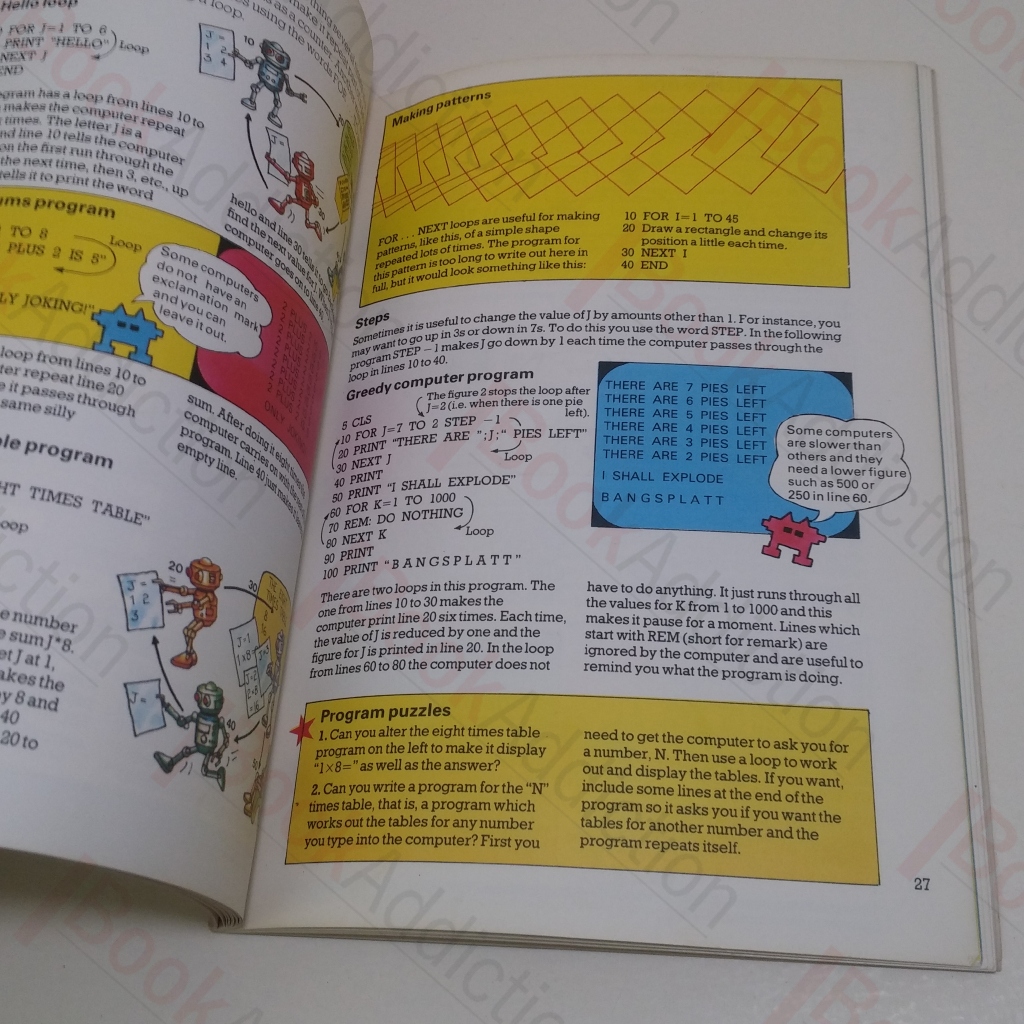 Hello loop
FOR J=1 TO 6
PRINT "HELLO"
NEXT J
END
Loop
a loop.
10
J =
1 2
3 4
20
30
program has a loop from lines 10 to
makes the computer repeat
times. The letter J is a
and line 10 tells the computer
on the first run through the
the next time, then 3, etc., up
tells it to print the word
hello and line 30 tells it
find the next value for J.
computer goes on to line 40
sums program
TO 8
PLUS 2 IS 5"
Loop
ONLY JOKING!"
Some computers
do not have an
exclamation mark
and you can
leave it out.
ONLY JOKING
loop from lines 10 to
computer repeat line 20
e it passes through
same silly
sum. After doing it eight times the
computer carries on with the
program. Line 40 just makes
empty line.
table program
EIGHT TIMES TABLE"
Loop
number
e sum J*8.
et J at 1,
makes the
by 8 and
40
20 to
20
30
J =
1 2
3
J=1
1×8
J=2
2×8
=16
J=
40
Making patterns
FOR . . . NEXT loops are useful for making
patterns, like this, of a simple shape
repeated lots of times. The program for
this pattern is too long to write out here in
full, but it would look something like this:
10 FOR I=1 TO 45
20 Draw a rectangle and change its
position a little each time.
30 NEXT I
40 END
Steps
Sometimes it is useful to change the value of J by amounts other than 1. For instance, you
may want to go up in 3s or down in 7s. To do this you use the word STEP. In the following
program STEP −1 makes J go down by 1 each time the computer passes through the
loop in lines 10 to 40.
Greedy computer program
The figure 2 stops the loop after
J=2 (i.e. when there is one pie
left).
5 CLS
10 FOR J=7 TO 2 STEP −1
20 PRINT "THERE ARE ";J;" PIES LEFT"
30 NEXT J
Loop
40 PRINT
50 PRINT "I SHALL EXPLODE"
60 FOR K=1 TO 1000
70 REM: DO NOTHING
80 NEXT K
Loop
90 PRINT
100 PRINT "B A N G S P L A T T"
THERE ARE 7 PIES LEFT
THERE ARE 6 PIES LEFT
THERE ARE 5 PIES LEFT
THERE ARE 4 PIES LEFT
THERE ARE 3 PIES LEFT
THERE ARE 2 PIES LEFT
I SHALL EXPLODE
B A N G S P L A T T
Some computers
are slower than
others and they
need a lower figure
such as 500 or
250 in line 60.
There are two loops in this program. The
one from lines 10 to 30 makes the
computer print line 20 six times. Each time,
the value of J is reduced by one and the
figure for J is printed in line 20. In the loop
from lines 60 to 80 the computer does not
have to do anything. It just runs through all
the values for K from 1 to 1000 and this
makes it pause for a moment. Lines which
start with REM (short for remark) are
ignored by the computer and are useful to
remind you what the program is doing.
Program puzzles
1. Can you alter the eight times table
program on the left to make it display
"1×8=" as well as the answer?
2. Can you write a program for the "N"
times table, that is, a program which
works out the tables for any number
you type into the computer? First you
need to get the computer to ask you for
a number, N. Then use a loop to work
out and display the tables. If you want,
include some lines at the end of the
program so it asks you if you want the
tables for another number and the
program repeats itself.
27
BookAddiction